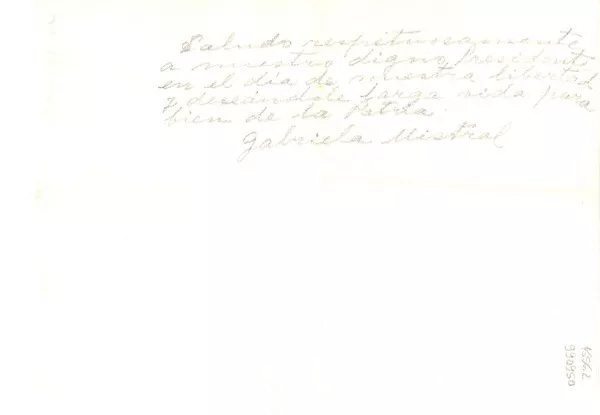 Saludo respetuosamente
a nuestro digno Presidente
en el día de nuestra libertad
y deseándole larga vida para
bien de la Patria.
Gabriela Mistral
990950